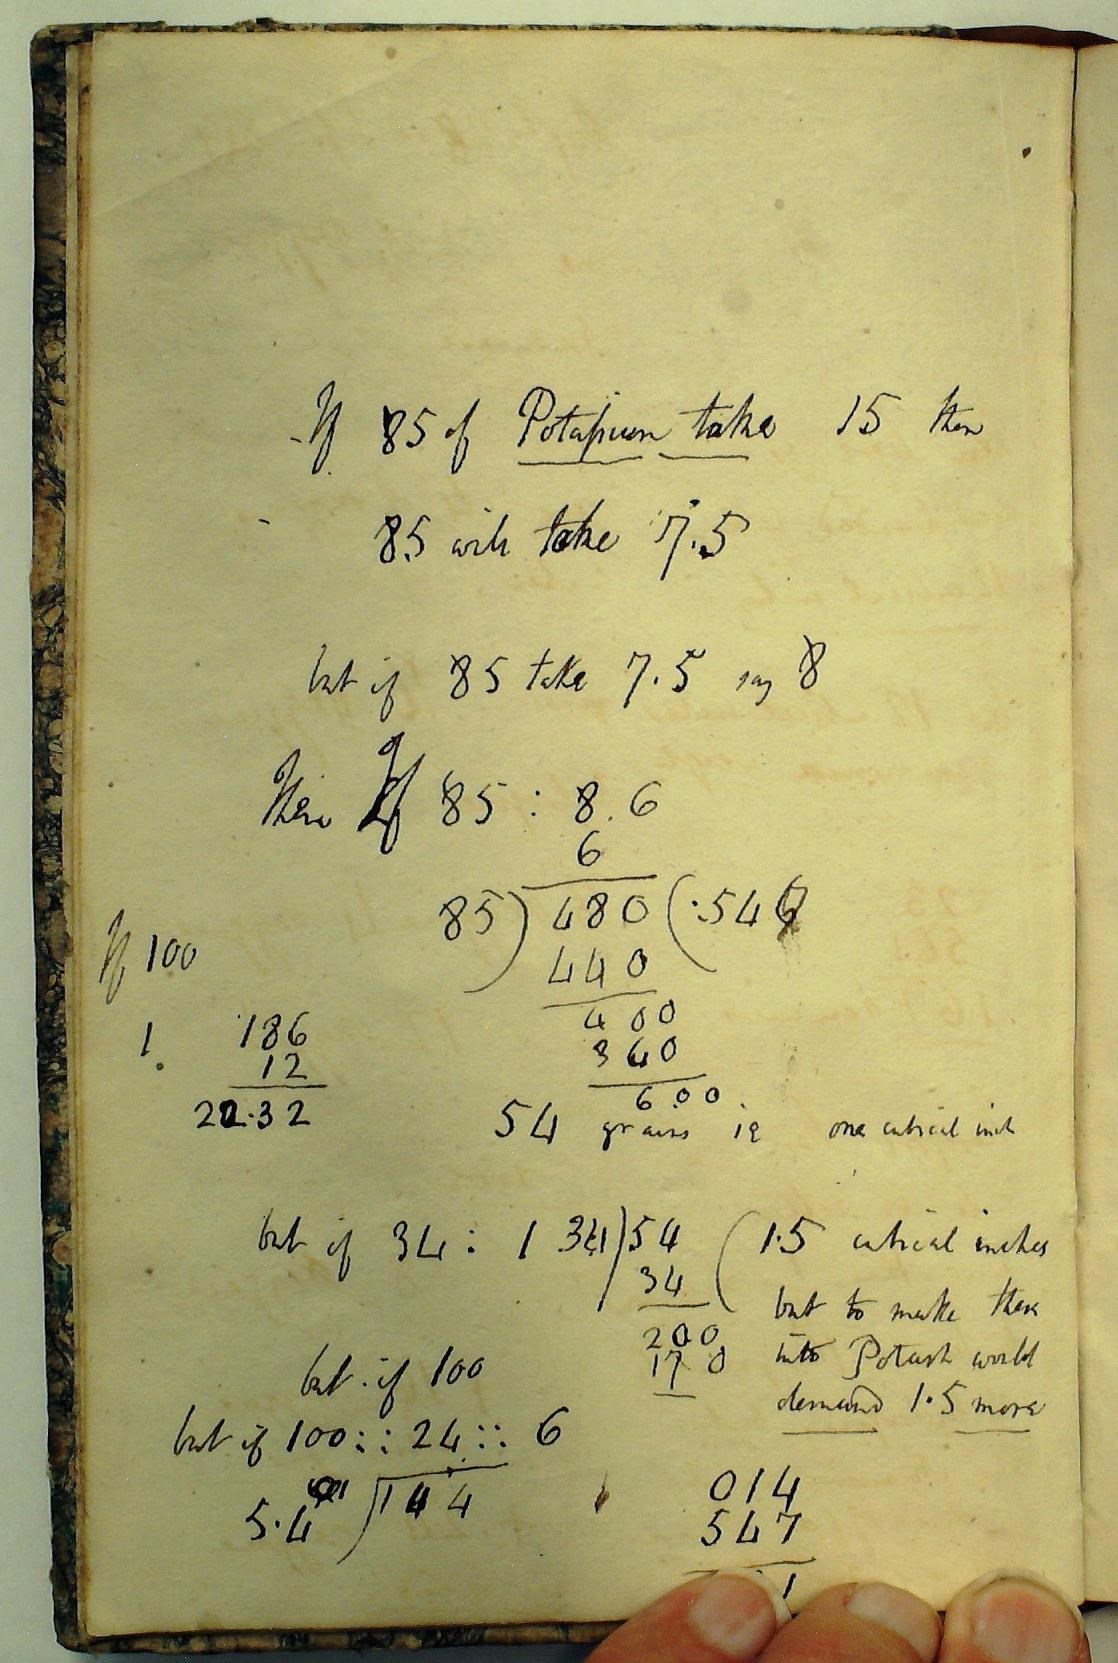 If 85 of Potaſsium take 15 then
85 will take 7.5
but if 85 take 7.5 say 8
Then If 85 : 8.6
6
85) 480 (.546
440
If 100
400
1 186
360
12
600
22.32
54 grains is one cubical inch
but if 34 : 1 34) 54 (1.5 cubical inches
34
but to make these
200
170
into Potash would
but if 100
demand 1.5 more
but if 100 :: 24 :: 6
5.4 ) 144
014
547
1